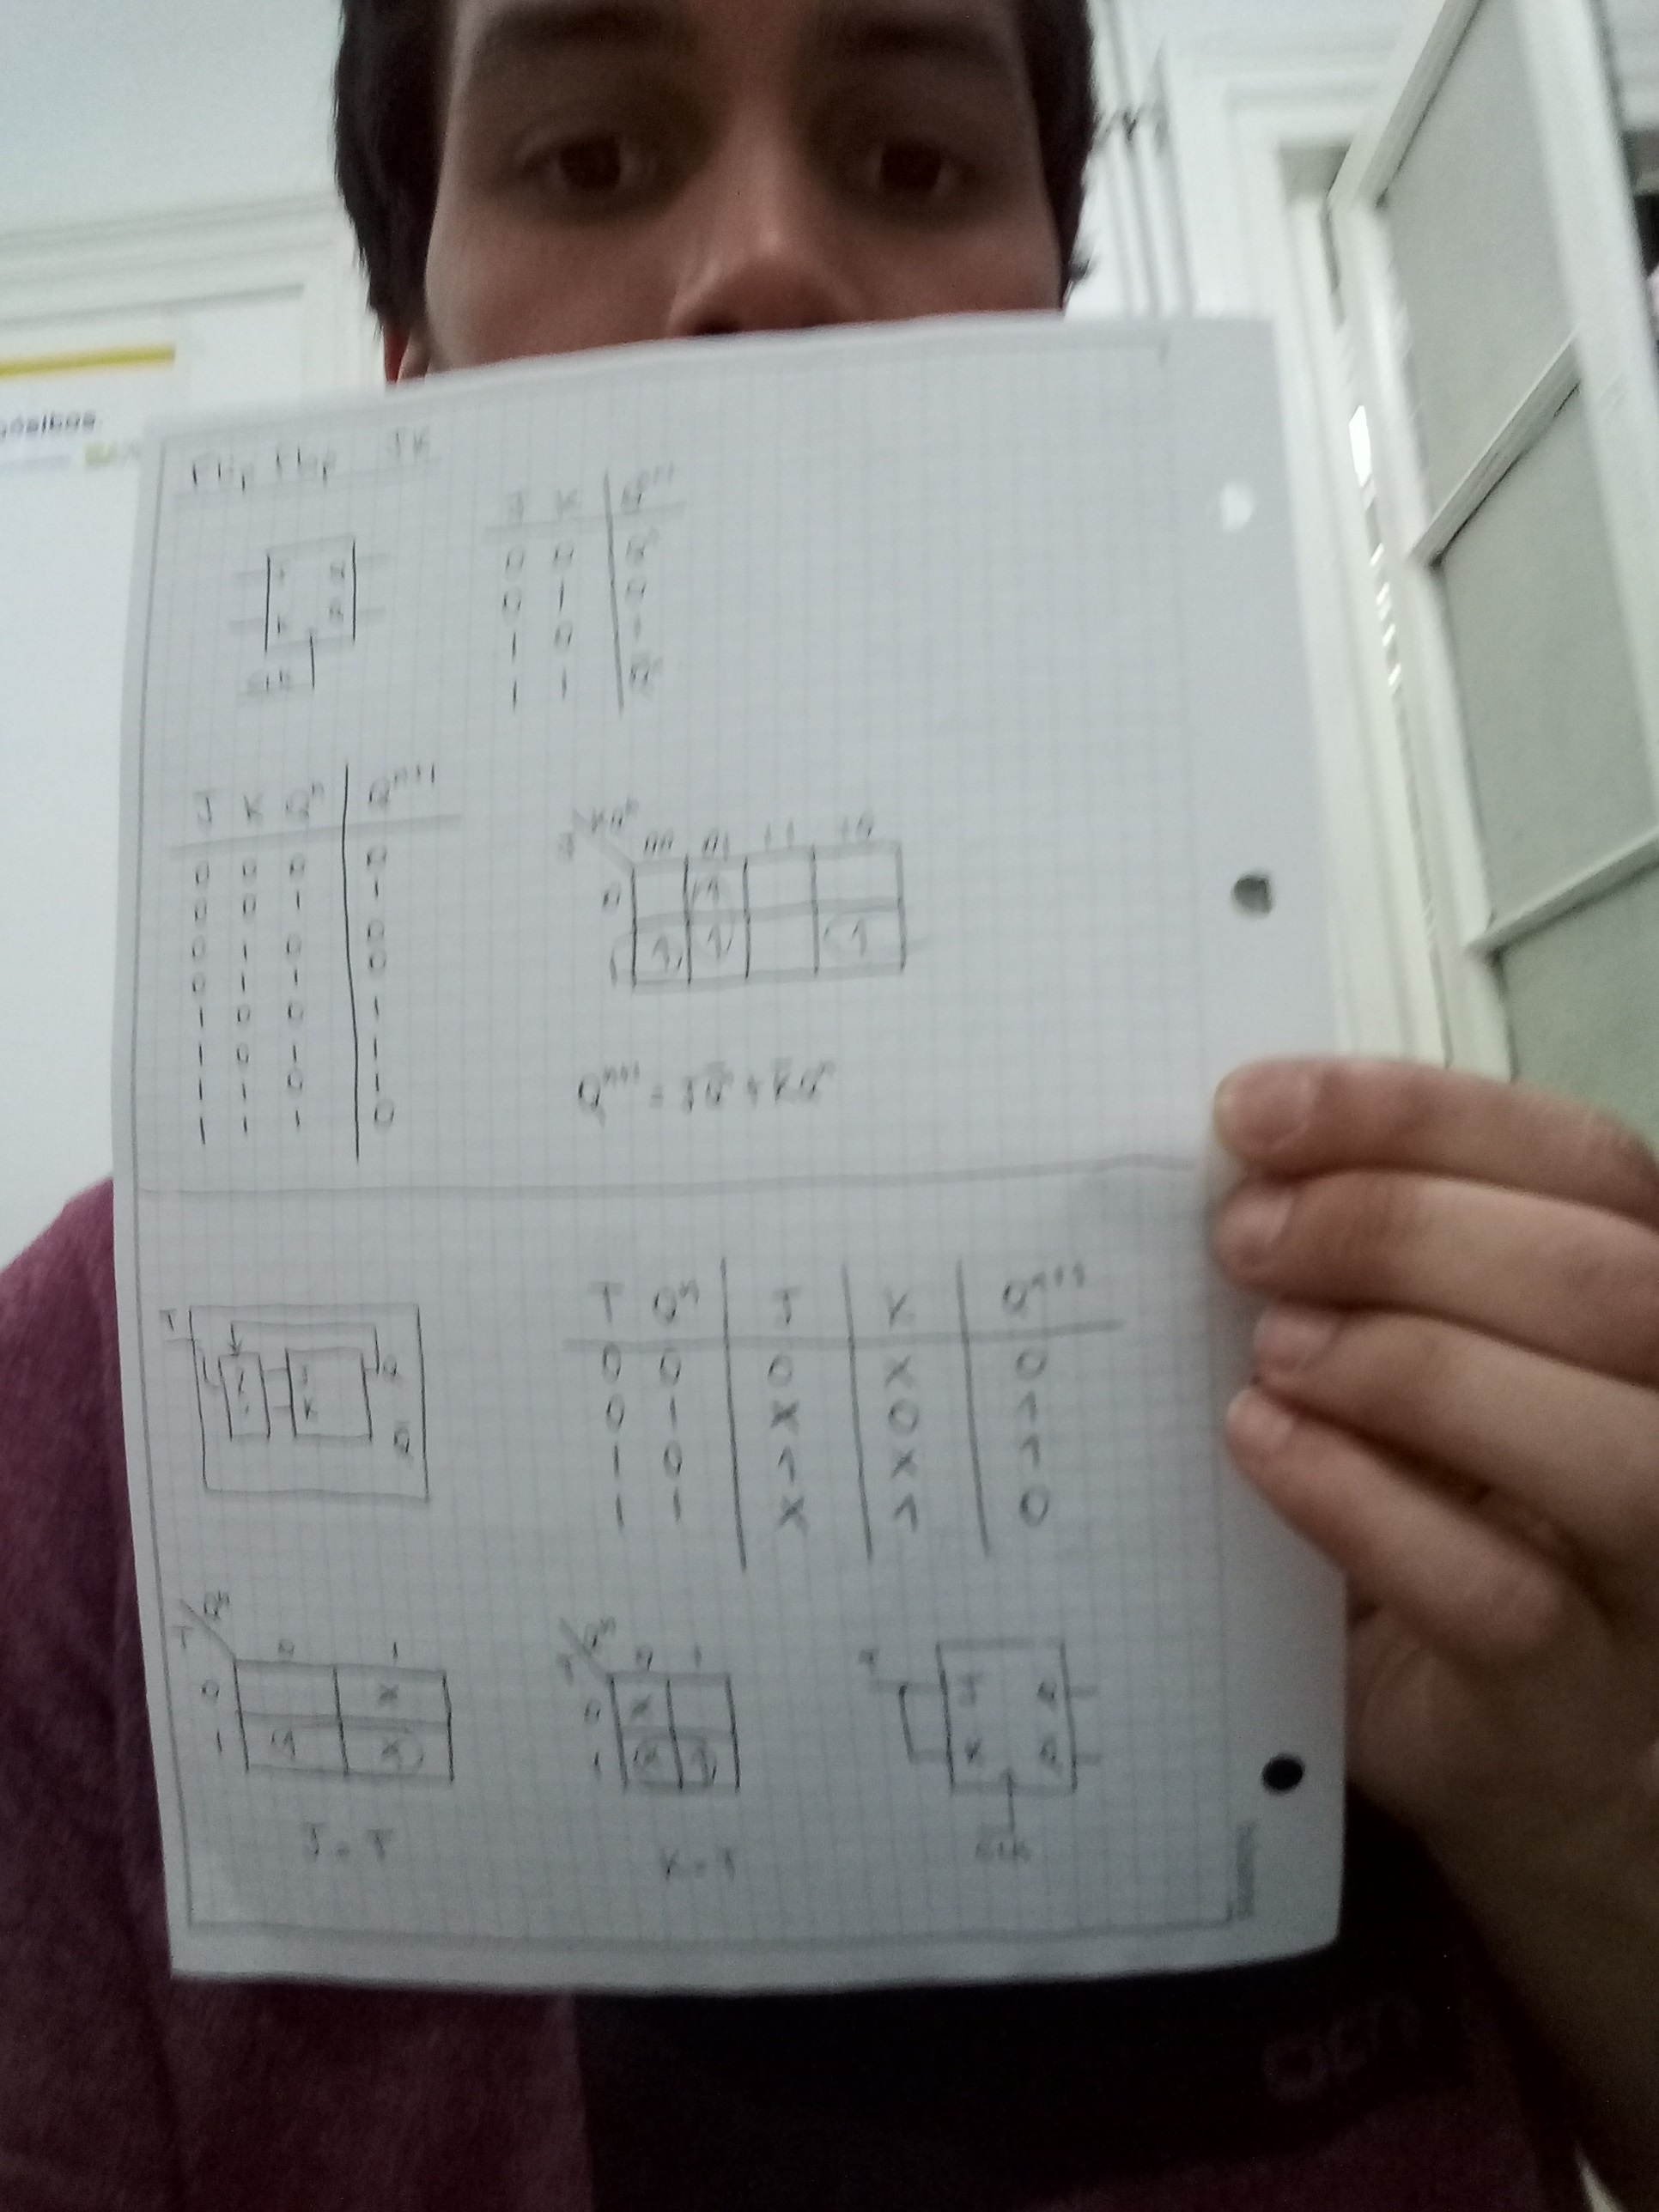 Flip Flop JK
J K Q^{n+1}
0 0 Q^n
0 1 0
1 0 1
1 1 Q̅^n
J Q
K Q̅
clk
J K Q^n Q^{n+1}
0 0 0 0
0 0 1 1
0 1 0 0
0 1 1 0
1 0 0 1
1 0 1 1
1 1 0 1
1 1 1 0
J KQ^n
00 01 11 10
0 1
1 1 1 1
Q^{n+1} = JQ̅^n + K̅Q^n
T
J Q
K Q̅
T Q^n J K Q^{n+1}
0 0 0 X 0
0 1 X 0 1
1 0 1 X 1
1 1 X 1 0
T Q^n
0 1
0 X
1 1 X
J = T
T Q^n
0 1
0 X
1 X 1
K = T
T
J Q
K Q̅
clk